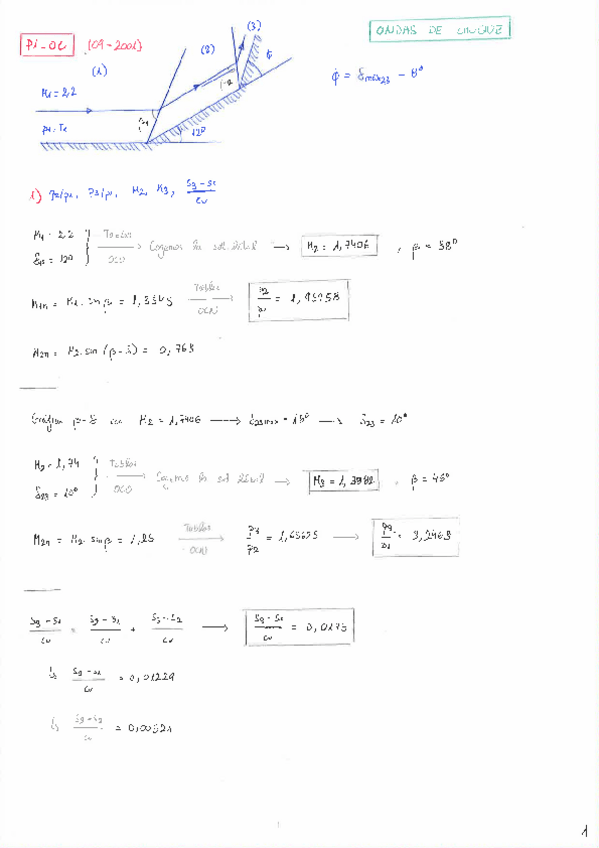 P1-OC (09-2001)
ONDAS DE CHOQUE
(1)
(2)
(3)
M1 = 2,2
P1, T1
12º
ϕ = δmax23 - 8º
1) P2/P1, P3/P1, M2, M3, (S3 - S1)/cv
M1 = 2,2
δ12 = 12º
Tablas
OCO
Cogemos la sol débil → M2 = 1,7406, β = 38º
M1n = M1 · sin β = 1,3545
Tablas
OCN
P2/P1 = 1,97358
M2n = M2 · sin (β - δ) = 0,763
Gráfica β-δ con M2 = 1,7406 → δ23max = 18º → δ23 = 10º
M2 = 1,74
δ23 = 10º
Tablas
OCO
Cogemos la sol débil → M3 = 1,3982, β = 46º
M2n = M2 · sin β = 1,25
Tablas
OCN
P3/P2 = 1,65625 → P3/P1 = 3,2463
(S3 - S1)/cv = (S2 - S1)/cv + (S3 - S2)/cv → (S3 - S1)/cv = 0,0175
= 0,01229
= 0,00521
1